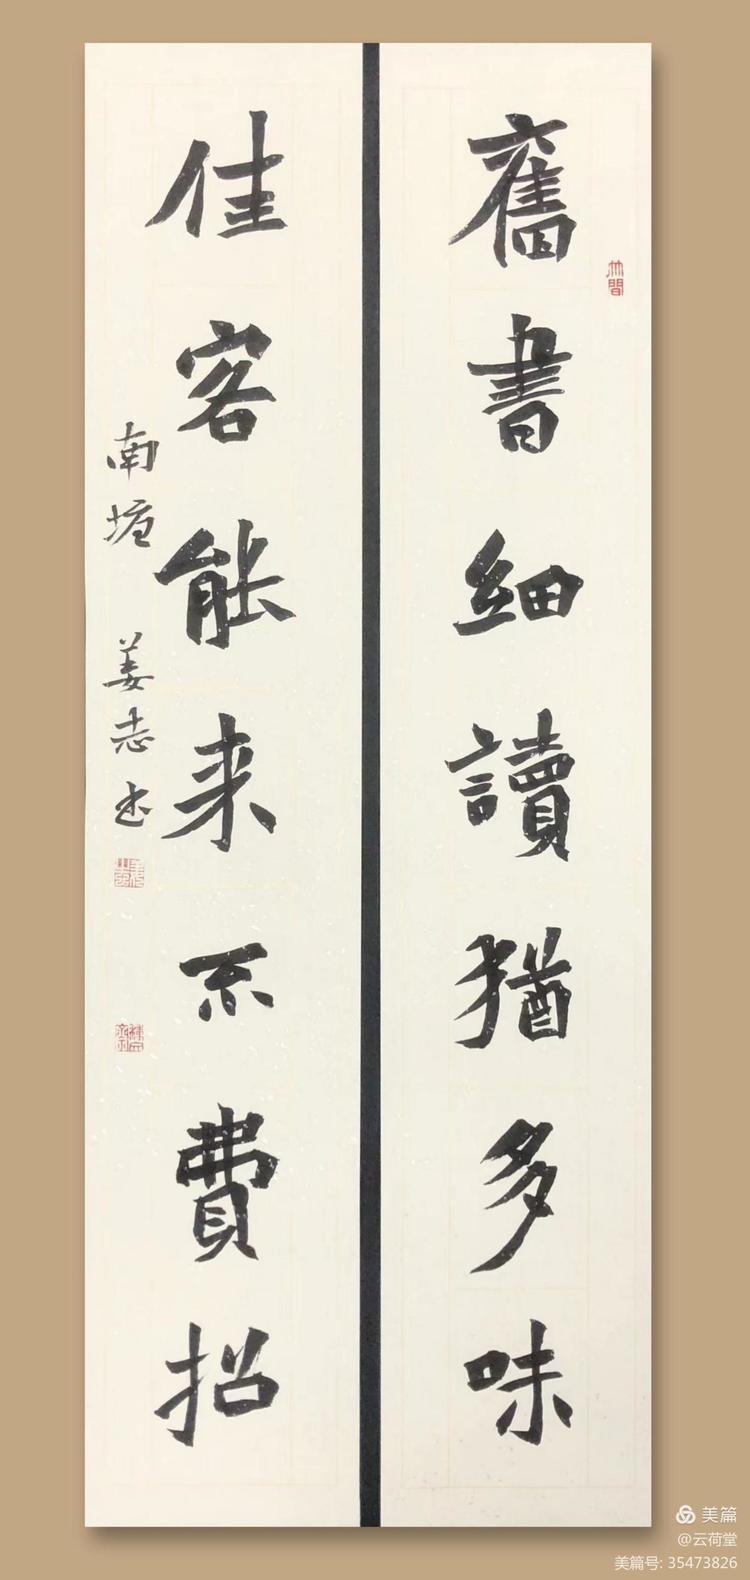 舊書細讀猶多味
佳客能来不費招
南
姜志书
竹間
美篇
@云荷堂
美篇号: 35473826